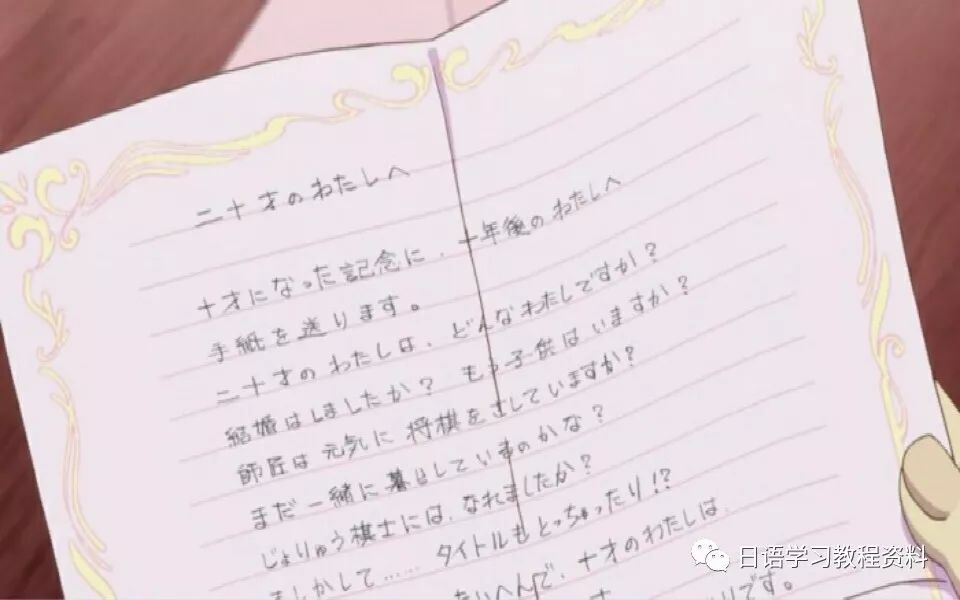 二十才のわたしへ
十才になった記念に、十年後のわたしへ
手紙を送ります。
二十才のわたしは、どんなわたしですか？
結婚はしましたか？ もう子供はいますか？
師匠は元気に将棋をさしていますか？
まだ一緒に暮らしているのかな？
じょりゅう棋士には、なれましたか？
もしかして…… タイトルもとっちゃったり!?
たいへんで、十才のわたしは、
りです。
日语学习教程资料